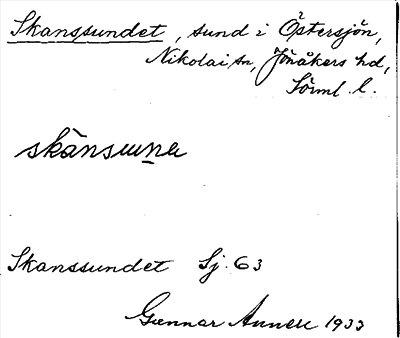 Skanssundet, sund i Östersjön,
Nikolai sn, Jönåkers hd,
Sörml. l.
skànsuṉa
Skanssundet Sj. 63
Gunnar 1933